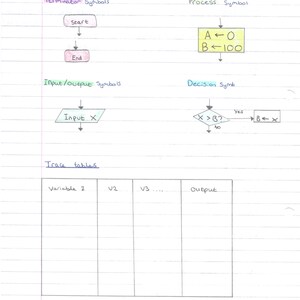 Terminator Symbols
Process Symbol
Start
End
A ← 0
B ← 100
Input/output Symbols
Decision Symb
Input X
X > B?
Yes
B ← X
NO
Trace tables
Variable 1
V2
V3 ....
Output